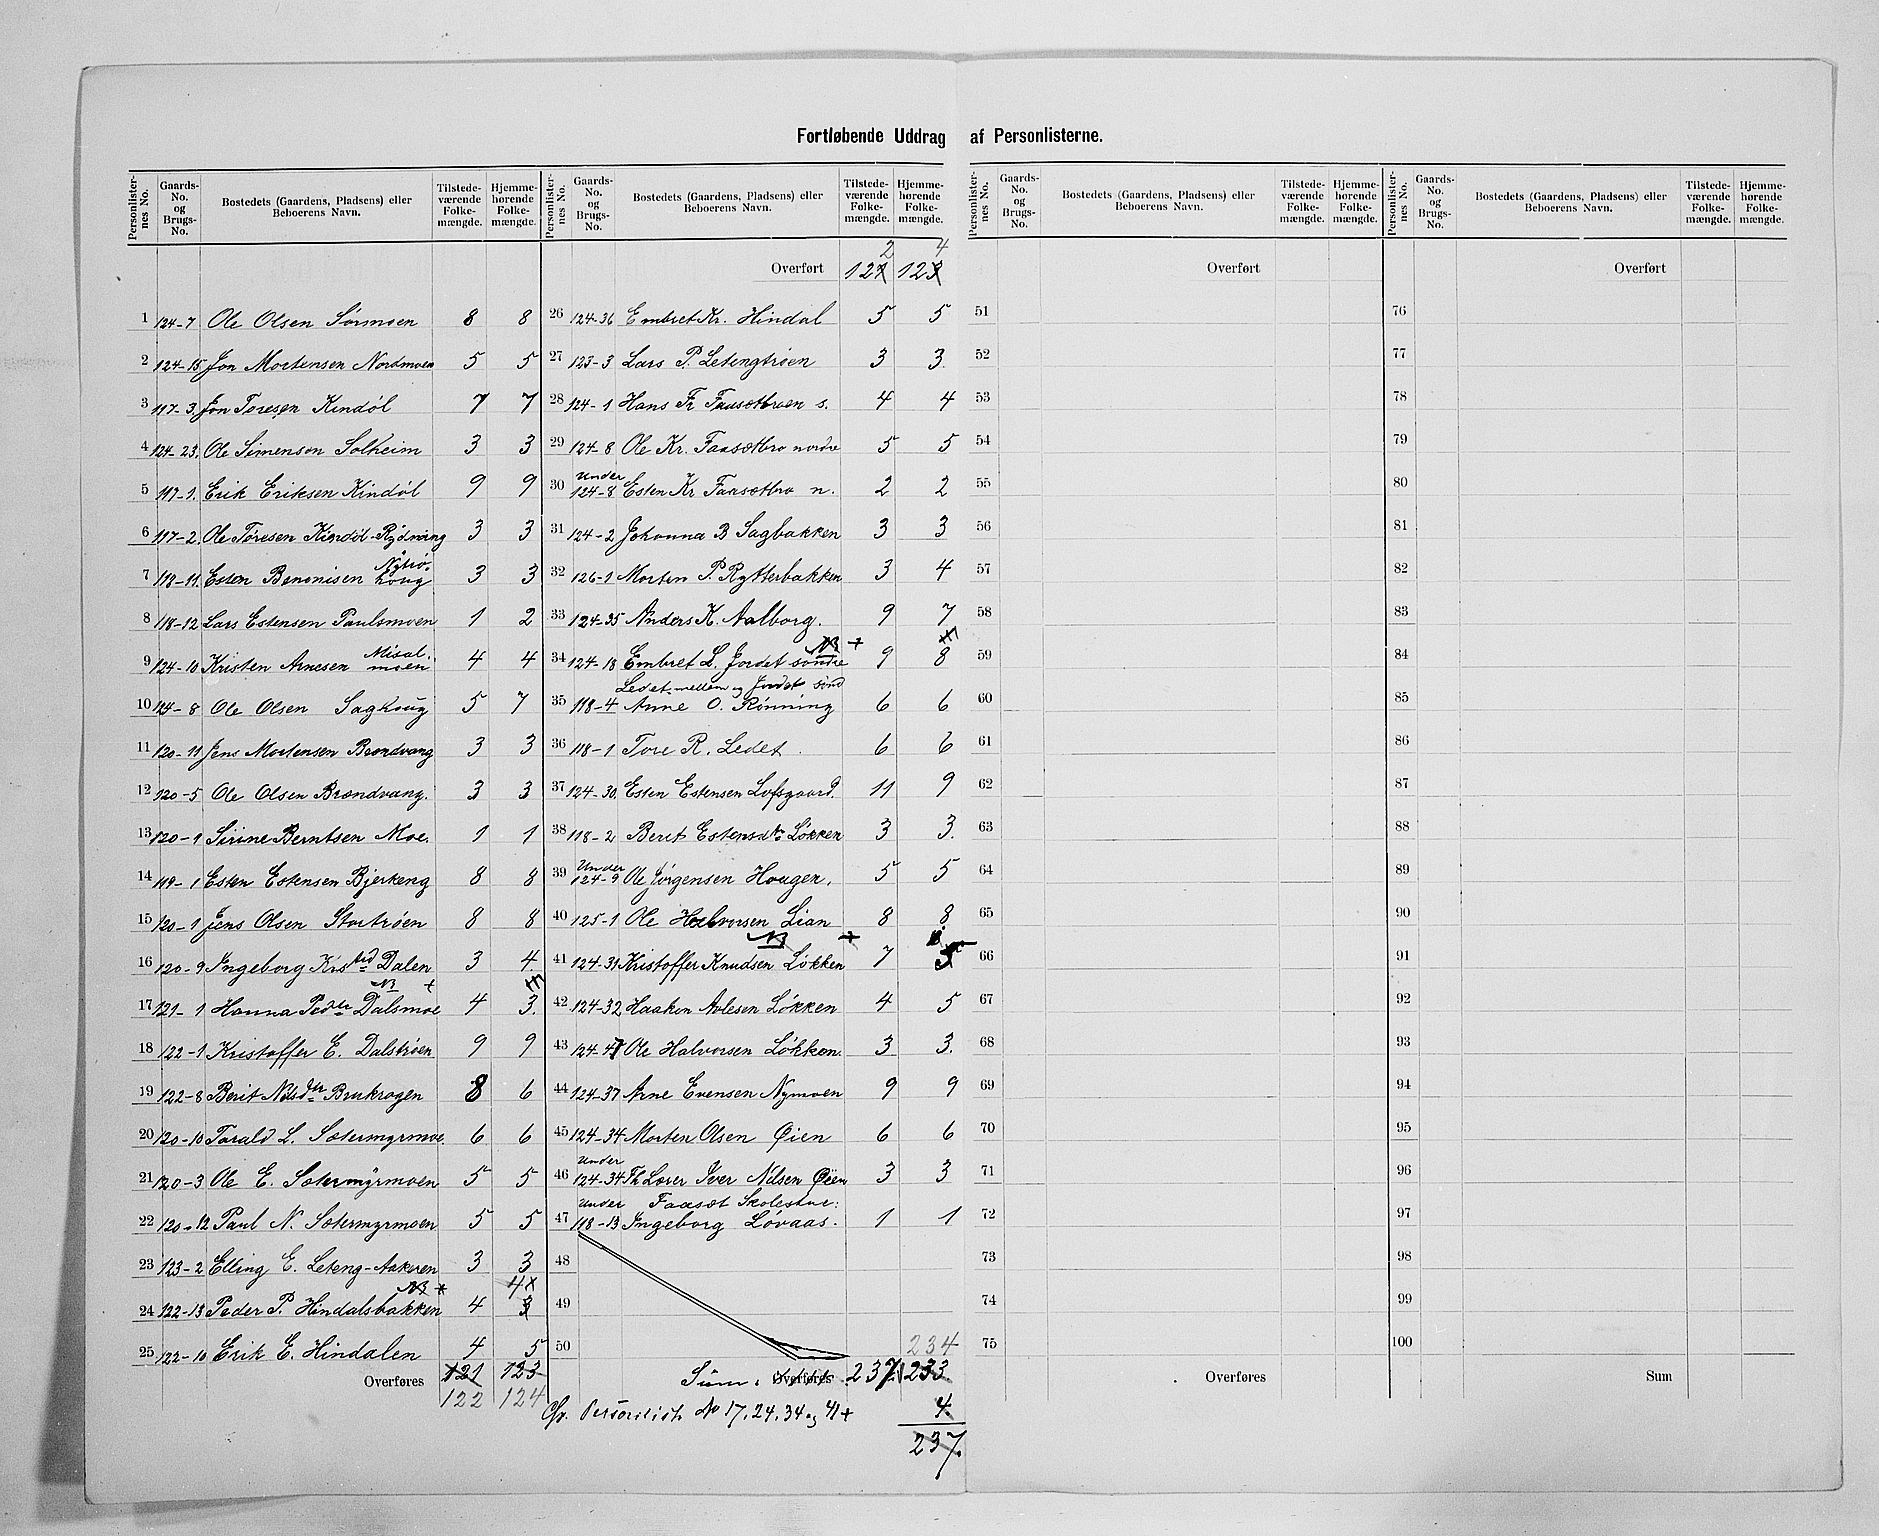 Fortløbende Uddrag af Personlisterne.
Personlisternes No. Gaards-No. og Brugs-No. Bostedets (Gaardens, Pladsens) eller Beboerens Navn. Tilstedeværende Folkemængde. Hjemmehørende Folkemængde.
1 124-7 Ole Olsen Sörmoen 8 8
2 124-15 Jon Mortensen Nordmoen 5 5
3 117-3. Jon Toresen Kindöl 7 7
4 124-23. Ole Simensen Solheim 3 3
5 117-1. Erik Eriksen Kindöl 9 9
6 117-2. Ole Töresen Kindöl-Rydning 3 3
7 118-11. Esten Benonisen Nytröhoug 3 3
8 118-12 Lars Estensen Paulsmoen 1 2
9 124-10 Kristen Arnesen Misalmoen 4 4
10 124-8 Ole Olsen Saghoug 5 7
11 120-11 Jens Mortensen Brændvang 3 3
12 120-5 Ole Olsen Brændvang. 3 3
13 120-1 Sirine Berntsen Moe. 1 1
14 119-1 Esten Estensen Bjerkeng 8 8
15 120-1 Jens Olsen Stortröen 8 8
16 120-9 Ingeborg Dalen 3 4.
NB +
17 121-1 Hanna Pedtr Dalsmoe 4 3.
18 122-1 Kristoffer E. Dalströen 9 9
19 122-8 Berit Nilsdtr Brukrogen 8 6
20 120-10 Torald L. Sætermyrmoe. 6 6
21 120-3 Ole E. Sætermyrmoen 5 5
22 120-12 Paul N. Sætermyrmoen 5 5
23 123-2 Elling E. Leteng-Aakeren 3 3
NB + 4x
24 122-13 Peder P. Hindalsbakken 4 3
25 122-10 Erik E. Hindalen 4 5
Overføres 121 123
122 124
Personlisternes No. Gaards-No. og Brugs-No. Bostedets (Gaardens, Pladsens) eller Beboerens Navn. Tilstedeværende Folkemængde. Hjemmehørende Folkemængde.
2 4
Overført 121 123
26 124-36 Embret Kr. Hindal 5 5
27 123-3 Lars P. Letengtröen 3 3.
28 124-1 Hans Fr Faasætbroen s. 4 4
29 124-8 Ole Kr. Faasætbro nordre 5 5
30 Under 124-8 Esten Kr Faasætbro n. 2 2
31 124-2 Johanna B Sagbakken 3 3
32 126-1 Morten P. Rytterbakken 3 4
33 124-35 Anders K. Aalborg. 9 7
NB +
34 124-18 Embret L. Jordet söndre 9 8
Ledet mellem og Jordet sönd
35 118-4 Anne O. Rönning 6 6
36 118-1 Tore R. Ledet. 6 6
37 124-30. Esten Estensen Lofsgaard. 11 9
38 118-2 Berit Estensdtr Lökken 3 3.
39 Under 124-9 Ole Jörgensen Haugen. 5 5
40 125-1 Ole Halvorsen Lian 8 8
NB +
41 124-31 Kristoffer Knudsen Lökken 7 5
42 124-32 Haaken Avlesen Lökken 4 5
43 124-47 Ole Halvorsen Lökken. 3 3.
44 124-37 Arne Evensen Nymoen 9 9
45 124-34 Morten Olsen Øien 6 6
46 Under 124-34 Th Lærer Iver Nilsen Øien 3 3
Under Faasæt Skolestue:
47 118-13 Ingeborg Lövaas. 1 1
48
49
50 234
Sum. Overføres 237. 233.
Cfr. Personlist. No 17, 24, 34 og 41+ 4.
237.
Personlisternes No. Gaards-No. og Brugs-No. Bostedets (Gaardens, Pladsens) eller Beboerens Navn. Tilstedeværende Folkemængde. Hjemmehørende Folkemængde.
Overført
51
52
53
54
55
56
57
58
59
60
61
62
63
64
65
66
67
68
69
70
71
72
73
74
75
Overføres
Personlisternes No. Gaards-No. og Brugs-No. Bostedets (Gaardens, Pladsens) eller Beboerens Navn. Tilstedeværende Folkemængde. Hjemmehørende Folkemængde.
Overført
76
77
78
79
80
81
82
83
84
85
86
87
88
89
90
91
92
93
94
95
96
97
98
99
100
Sum